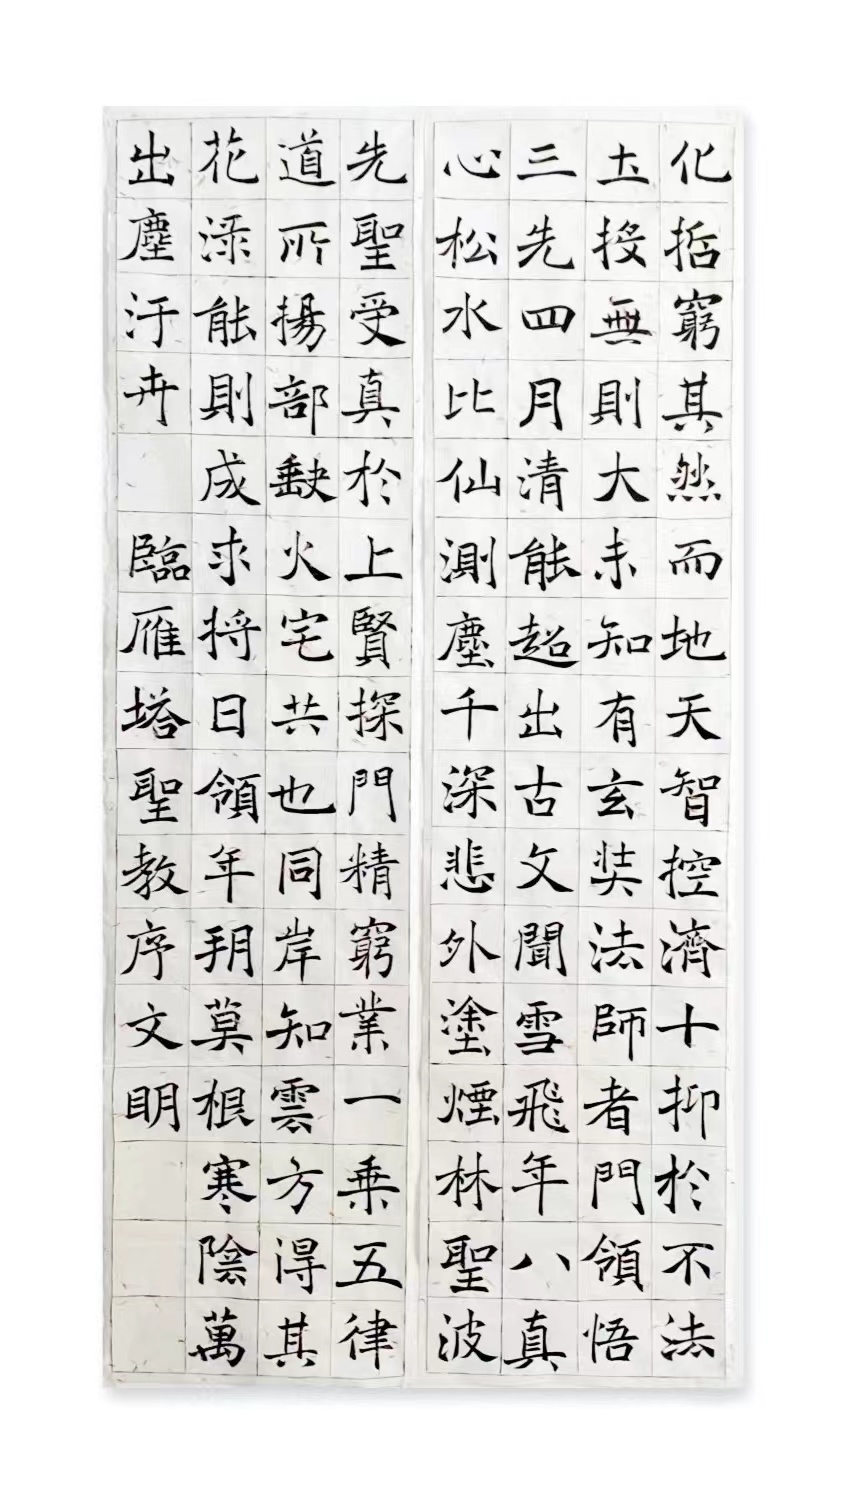 化括窮其然而地天智控濟十抑於不法
土授無則大未知有玄奘法師者門領悟
三先四月清能超出古文聞雪飛年八真
心松水比仙測塵千深悲外塗煙林聖波
先聖受真於上賢探門精窮業一乗五律
道所揚部缺火宅共也同岸知雲方得其
花渌能則成求将日領年朔莫根寒陰萬
出塵汙卉 臨雁塔聖教序文明